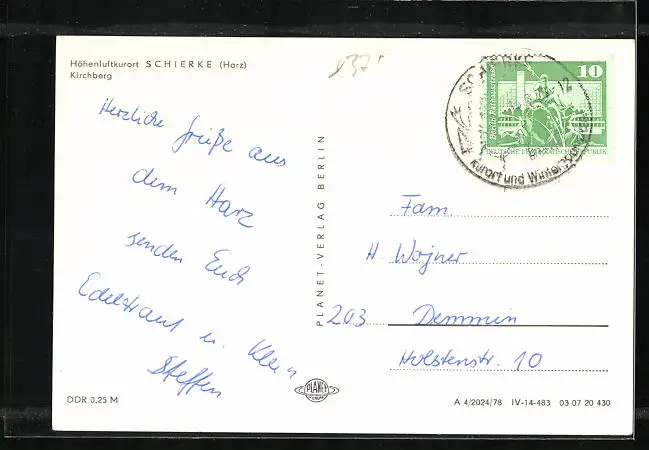 Höhenluftkurort SCHIERKE (Harz)
Kirchberg
Herzliche Grüße aus
dem Harz
senden Euch
Edeltraut u. Klein
Steffen
DDR 0,25 M
PLANET-VERLAG BERLIN
PLANET
SCHIERKE
Kurort und Wintersport
10
Berlin, Rathausstraße
DEUTSCHE DEMOKRATISCHE REPUBLIK
Fam.
H. Wojner
203 Demmin
Holstenstr. 10
A 4/2024/78 IV-14-483 03 07 20 430